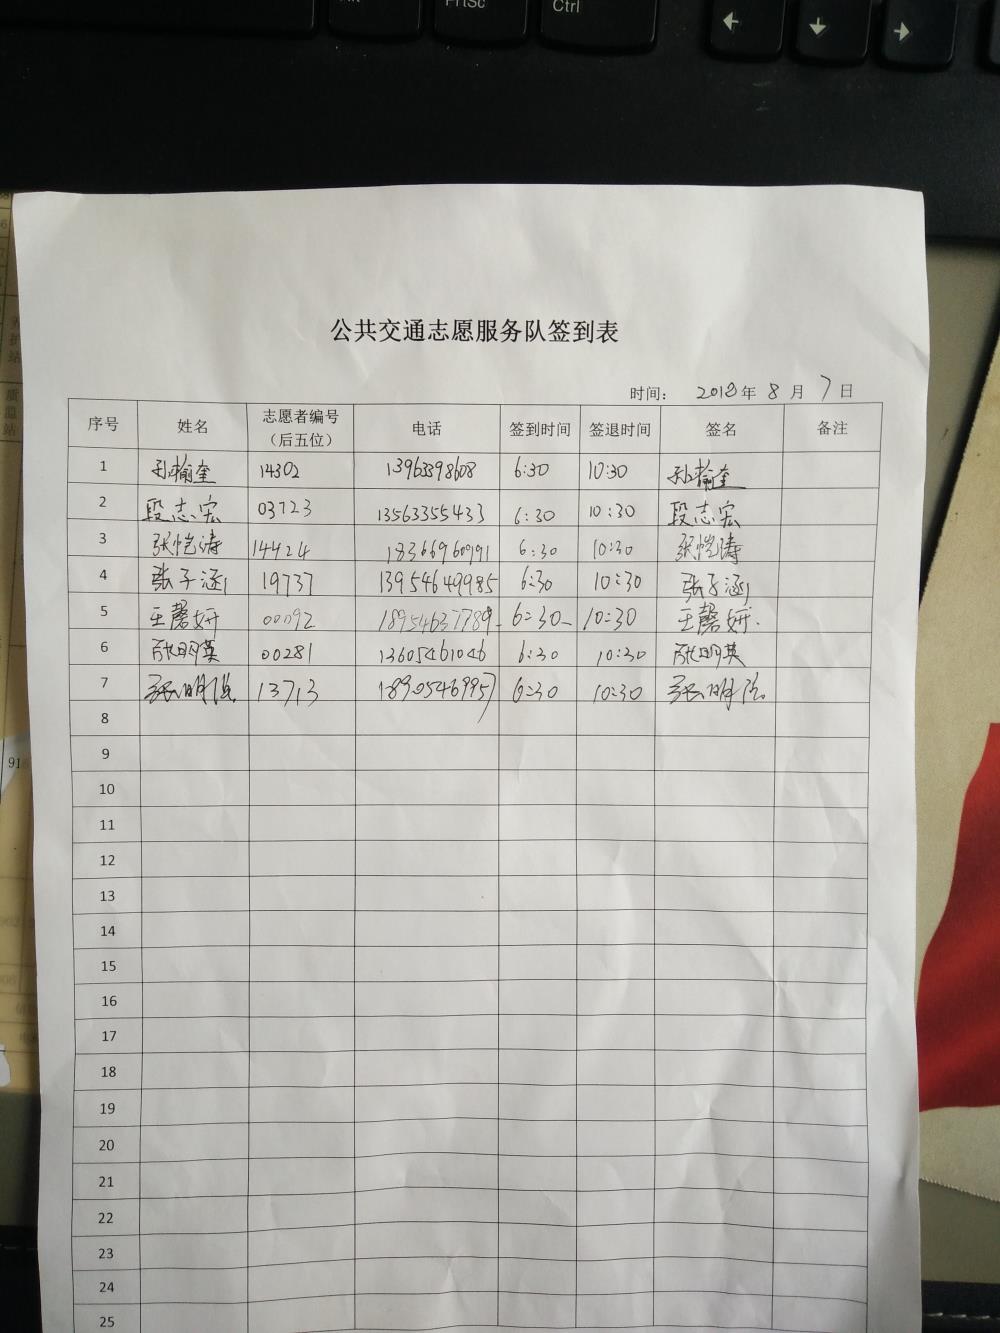 PrtSc
Ctrl
公共交通志愿服务队签到表
时间： 2018年 8 月 7日
序号 姓名 志愿者编号（后五位） 电话 签到时间 签退时间 签名 备注
1 孙榆奎 14302 13963398608 6:30 10:30 孙榆奎
2 段志宏 03723 13563355433 6:30 10:30 段志宏
3 张恺涛 14424 18366960991 6:30 10:30 张恺涛
4 张子涵 19737 13954649985 6:30 10:30 张子涵
5 王馨妍 00092 18954637789 6:30 10:30 王馨妍
6 00281 13605461046 6:30 10:30
7 张明 13713 18905469957 6:30 10:30 张明
8
9
10
11
12
13
14
15
16
17
18
19
20
21
22
23
24
25